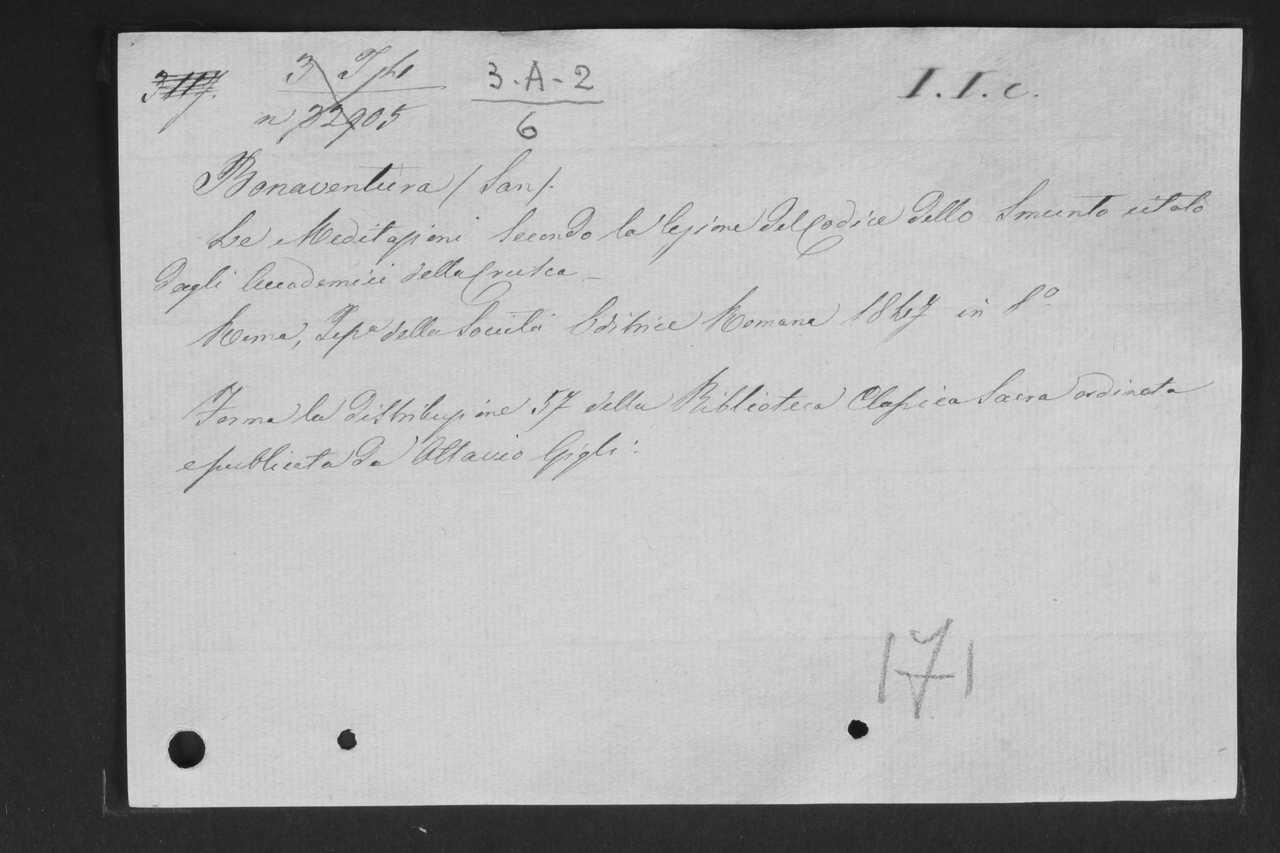 3117.
3
n 32905
3-A-2
6
I.I.c.
Bonaventura (San).
Le Meditazioni secondo la lezione del Codice dello Smunto citato
dagli Accademici della Crusca -
Roma, Tipª della Società Editrice Romana 1847 in 8º
Forma la distribuzione 57 della Biblioteca Classica Sacra ordinata
e publicata da Ottavio Gigli:
171